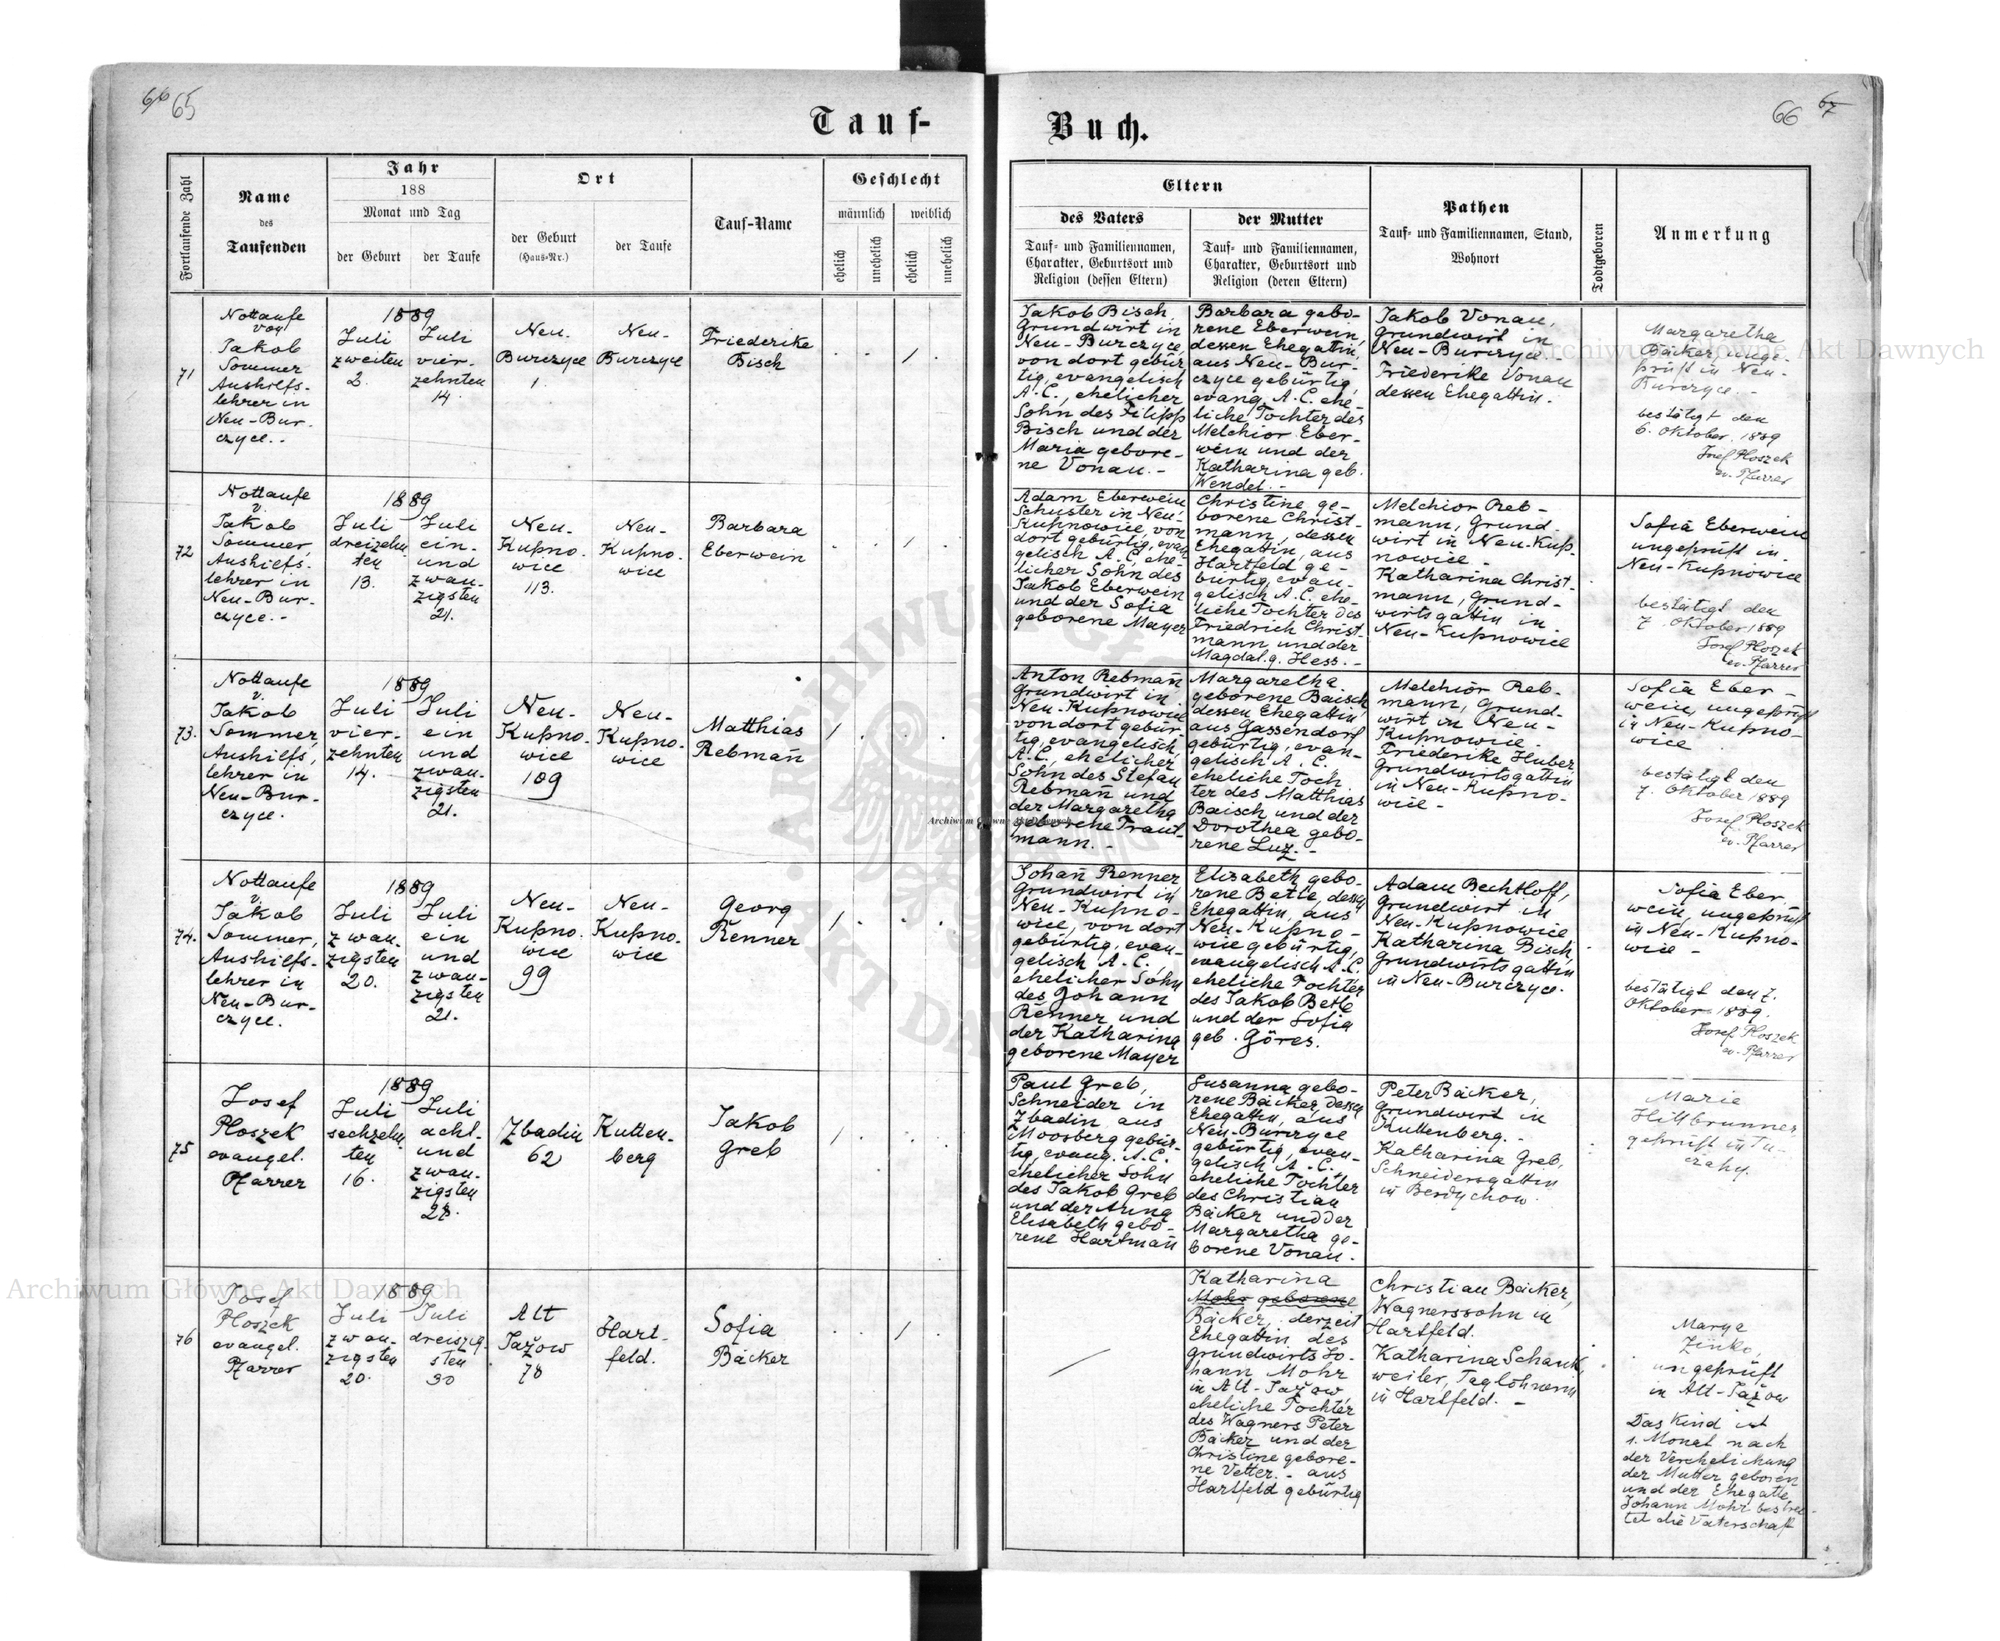 66 65
Tauf-
Buch.
66 67
Fortlaufende Zahl
Name
des
Taufenden
Jahr
188
Monat und Tag
der Geburt
der Taufe
Ort
der Geburt
(Haus-Nr.)
der Taufe
Tauf-Name
Geschlecht
männlich
weiblich
ehelich
unehelich
ehelich
unehelich
Eltern
des Vaters
Tauf- und Familiennamen,
Charakter, Geburtsort und
Religion (dessen Eltern)
der Mutter
Tauf- und Familiennamen,
Charakter, Geburtsort und
Religion (deren Eltern)
Pathen
Tauf- und Familiennamen, Stand,
Wohnort
Todtgeboren
Anmerkung
71
Nottaufe
von
Jakob
Sommer
Aushilfs-
lehrer in
Neu-Bur-
czyce.-
1889
Juli
zweiten
2.
Juli
vier-
zehnten
14.
Neu-
Burczyce
1.
Neu-
Burczyce
Friederike
Bisch
Jakob Bisch
Grundwirt in
Neu-Burczyce,
von dort gebür-
tig, evangelisch
A.C., ehelicher
Sohn des Filipp
Bisch und der
Maria gebore-
ne Vonau.-
Barbara gebo-
rene Eberwein,
dessen Ehegattin,
aus Neu-Bur-
czyce gebürtig,
evang. A.C. ehe-
liche Tochter des
Melchior Eber-
wein und der
Katharina geb.
Wendel.-
Jakob Vonau,
Grundwirt in
Neu-Burczyce.
Friederike Vonau
dessen Ehegattin.
Margaretha
Bäcker, unge-
prüft in Neu-
Burczyce.-
bestätigt den
6. Oktober 1889
Josef Ploszek
ev. Pfarrer
72
Nottaufe
v.
Jakob
Sommer,
Aushilfs-
lehrer in
Neu-Bur-
czyce.-
1889
Juli
dreizehn
ten
13.
Juli
ein-
und
zwan-
zigsten
21.
Neu-
Kupno-
wice
113.
Neu-
Kupno-
wice
Barbara
Eberwein
Adam Eberwein
Schuster in Neu-
Kupnowice, von
dort gebürtig, evan
gelisch A.C. ehe-
licher Sohn des
Jakob Eberwein
und der Sofia
geborene Mayer
Christine ge-
borene Christ-
mann, dessen
Ehegattin, aus
Hartfeld ge-
bürtig, evan-
gelisch A.C. ehe-
liche Tochter des
Friedrich Christ-
mann und der
Magdal. g. Hess.-
Melchior Reb-
mann, Grund-
wirt in Neu-Kup-
nowice.-
Katharina Christ-
mann, Grund-
wirtsgattin in
Neu-Kupnowice
Sofia Eberwein
ungeprüft in
Neu-Kupnowice
bestätigt den
7. Oktober 1889
Josef Ploszek
ev. Pfarrer
73.
Nottaufe
v.
Jakob
Sommer,
Aushilfs-
lehrer in
Neu-Bur-
czyce.
1889
Juli
vier-
zehnten
14.
Juli
ein
und
zwan-
zigsten
21.
Neu-
Kupno-
wice
109
Neu-
Kupno-
wice
Matthias
Rebmañ
Anton Rebmañ
Grundwirt in
Neu-Kupnowice
von dort gebür-
tig, evangelisch
A.C., ehelicher
Sohn des Stefan
Rebmañ und
der Margaretha
geborene Traut-
mann.-
Margaretha
geborene Baisch,
dessen Ehegattin,
aus Gassendorf
gebürtig, evan-
gelisch A.C.
eheliche Toch
ter des Matthias
Baisch und der
Dorothea gebo-
rene Luz.-
Melchior Reb-
mann, Grund-
wirt in Neu-
Kupnowice.
Friederike Huber
Grundwirtsgattin
in Neu-Kupno-
wice-
Sofia Eber-
wein, ungeprüft
in Neu-Kupno-
wice
bestätigt den
7. Oktober 1889
Josef Ploszek
ev. Pfarrer
74.
Nottaufe
v.
Jakob
Sommer,
Aushilfs-
lehrer in
Neu-Bur-
czyce.
1889
Juli
zwan-
zigsten
20.
Juli
ein
und
zwan-
zigsten
21.
Neu-
Kupno-
wice
99
Neu-
Kupno-
wice
Georg
Renner
Johañ Renner
Grundwirt in
Neu-Kupno-
wice, von dort
gebürtig, evan-
gelisch A.C.
ehelicher Sohn
des Johann
Renner und
der Katharina
geborene Mayer
Elisabeth gebo-
rene Betle, dessen
Ehegattin, aus
Neu-Kupno-
wice gebürtig,
evangelisch A.C.
eheliche Tochter
des Jakob Betle
und der Sofia
geb. Göres.
Adam Bechtloff,
Grundwirt in
Neu-Kupnowice
Katharina Bisch,
Grundwirtsgattin
in Neu-Burczyce.
Sofia Eber
wein, ungeprüft
in Neu-Kupno-
wice-
bestätigt den 7.
Oktober 1889.
Josef Ploszek
ev. Pfarrer
75
Josef
Ploszek
evangel.
Pfarrer
1889
Juli
sechzehn
ten
16.
Juli
acht-
und
zwan-
zigsten
28.
Zbadin
62
Kutten-
berg
Jakob
Greb
Paul Greb,
Schneider in
Zbadin aus
Moosberg gebür-
tig, evang. A.C.
ehelicher Sohn
des Jakob Greb
und der Anna
Elisabeth gebo-
rene Hartmañ
Susanna gebo-
rene Bäcker, dessen
Ehegattin, aus
Neu-Burczyce
gebürtig, evan-
gelisch A.C.
eheliche Tochter
des Christian
Bäcker und der
Margaretha ge-
borene Vonau.
Peter Bäcker,
Grundwirt in
Kuttenberg.-
Katharina Greb,
Schneidersgattin
in Berdychow.
Marie
Hillbrunner,
geprüft in Tu-
czapy.
76
Josef
Ploszek
evangel.
Pfarrer
1889
Juli
zwan-
zigsten
20.
Juli
dreiszig-
sten
30
Alt
Jažow
78
Hart-
feld.
Sofia
Bäcker
Katharina
Mohr geborene
Bäcker, derzeit
Ehegattin des
Grundwirts Jo-
hann Mohr
in Alt-Jažow,
eheliche Tochter
des Wagners Peter
Bäcker und der
Christine gebore-
ne Vetter.- aus
Hartfeld gebürtig
Christian Bäcker,
Wagnerssohn in
Hartfeld.
Katharina Schank
weiler, Taglöhnerin
in Hartfeld.-
Marya
Zinko,
ungeprüft
in Alt-Jažow
Das Kind ist
1. Monat nach
der Verehelichung
der Mutter geboren
und der Ehegatte
Johann Mohr bestrei-
tet die Vaterschaft
Archiwum Główne Akt Dawnych
Archiwum Główne Akt Dawnych
Archiwum Główne Akt Dawnych